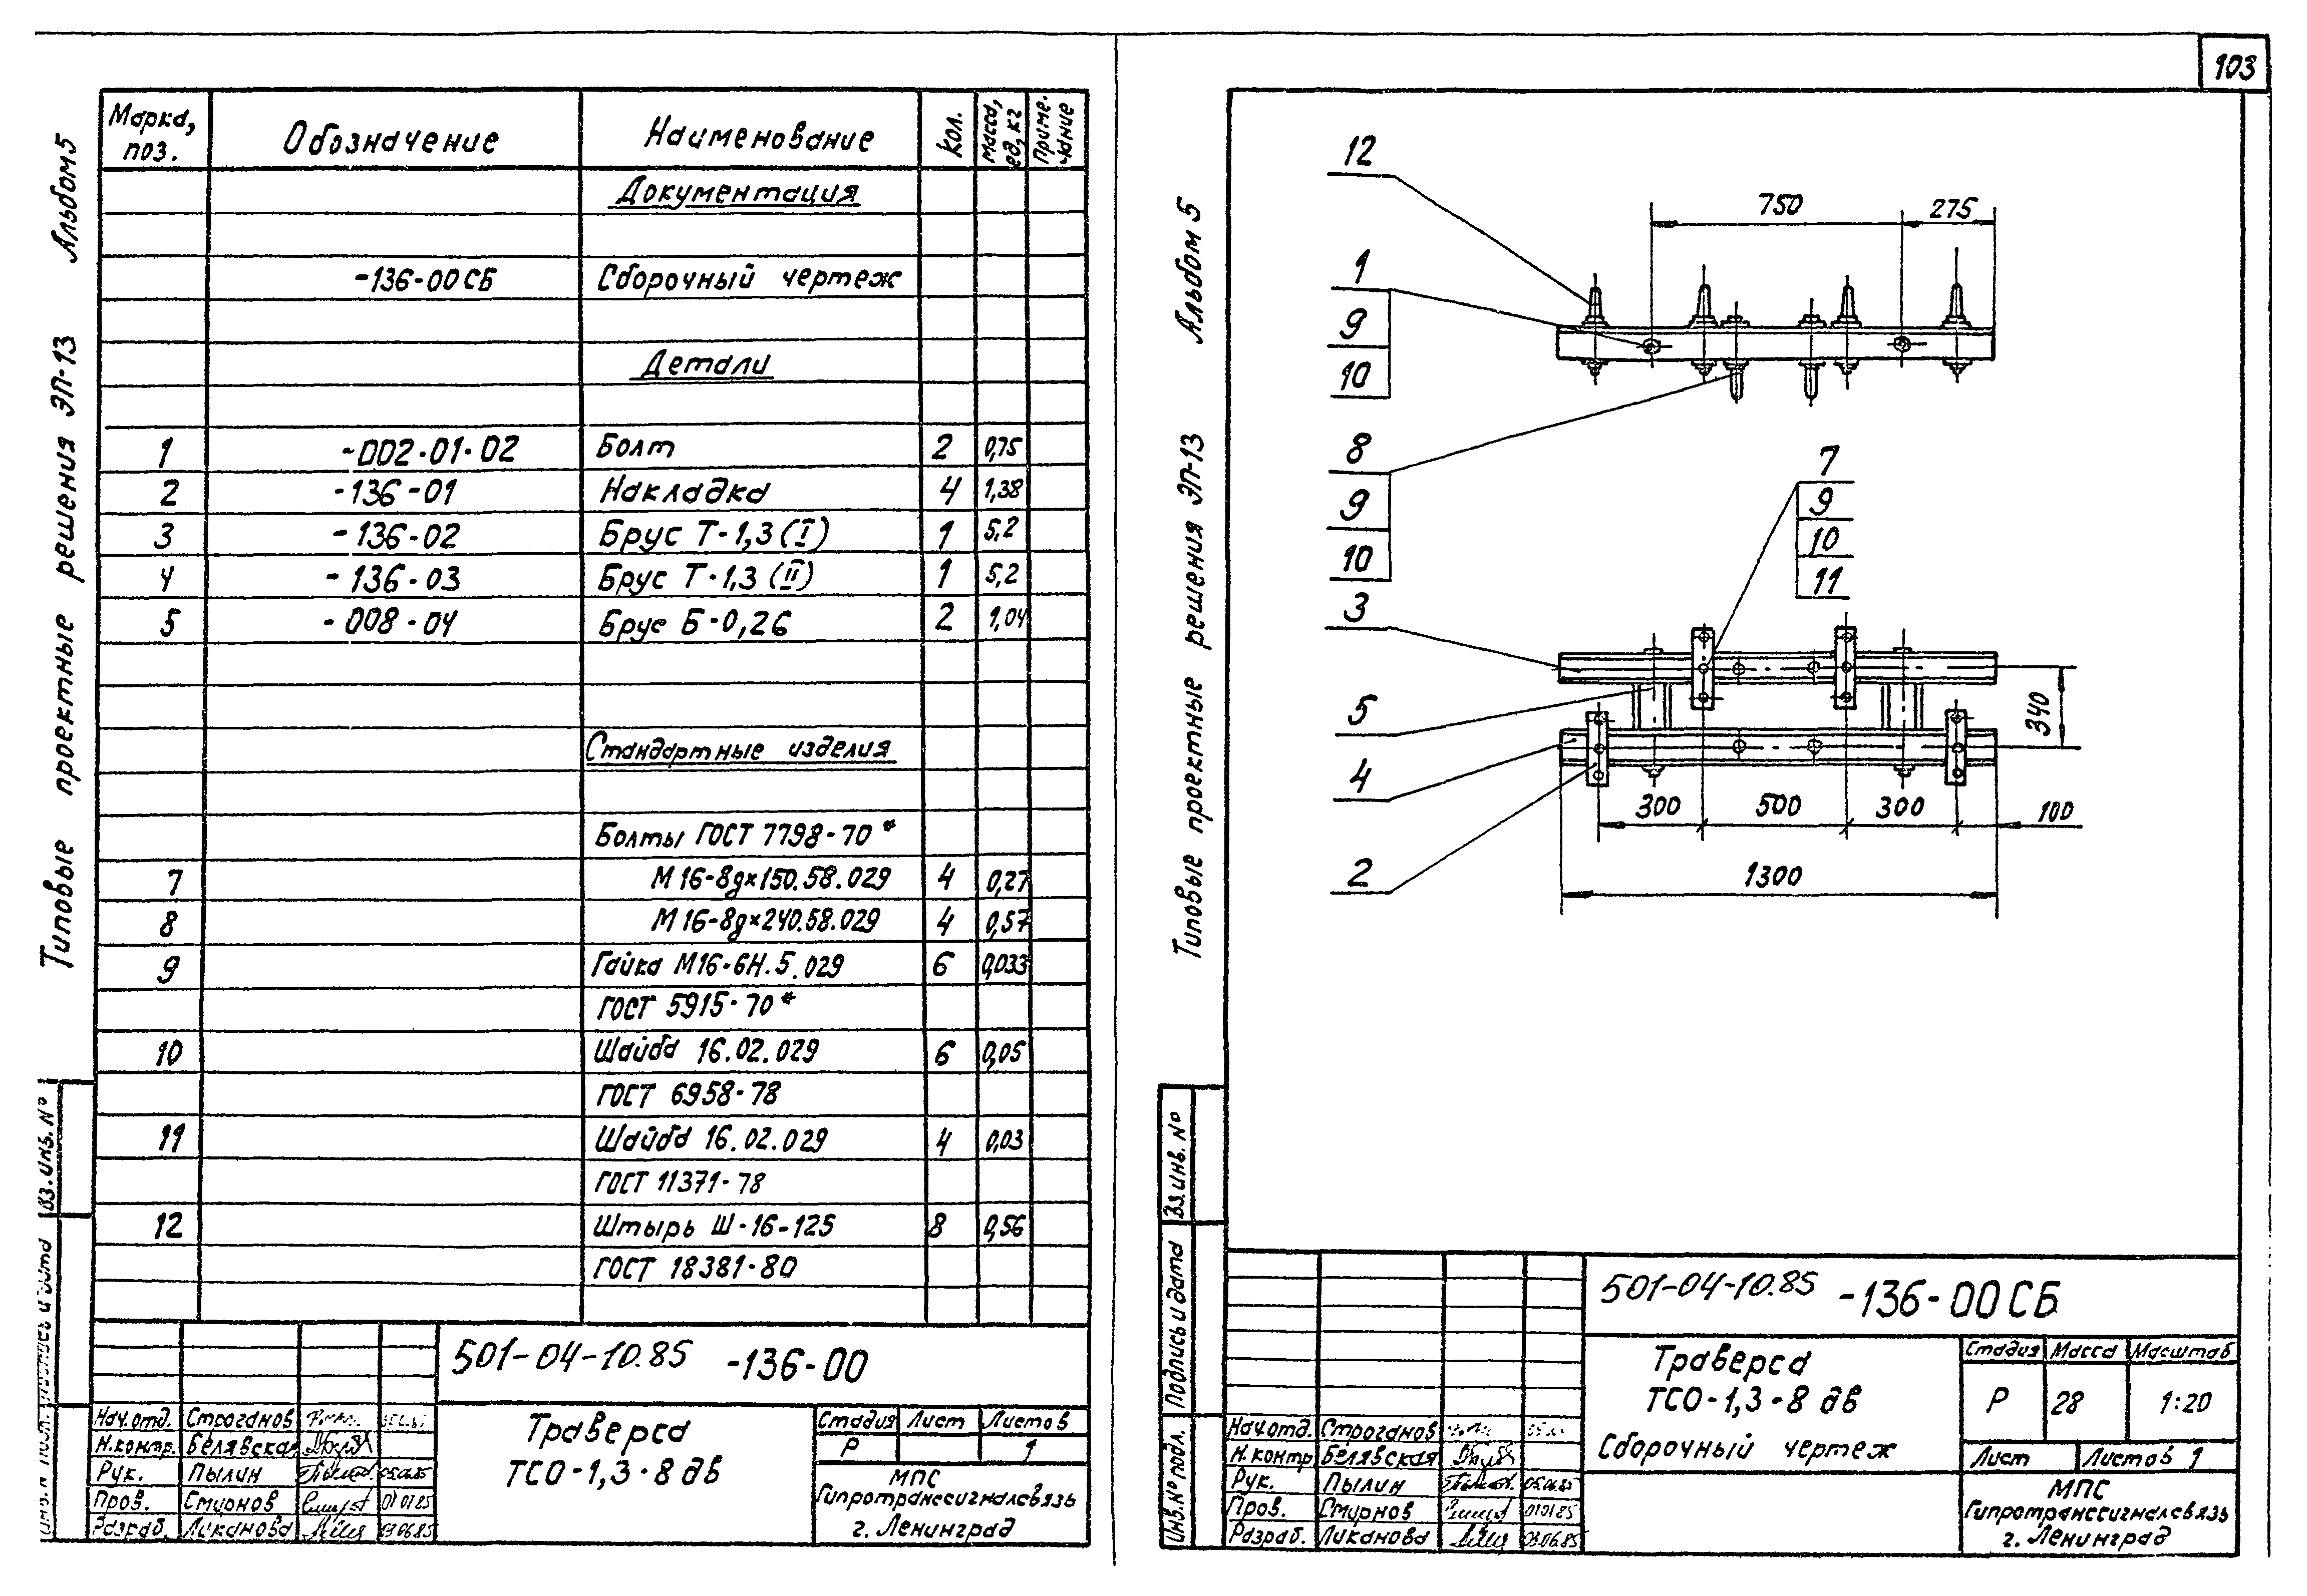 103
Альбом 5
Типовые проектные решения ЭП-13
Марка, поз. Обозначение Наименование Кол. Масса, ед, кг Приме. чание
Документация
-136-00 СБ Сборочный чертеж
Детали
1 -002.01-02 Болт 2 0,75
2 -136-01 Накладка 4 1,38
3 -136-02 Брус Т-1,3 (I) 1 5,2
4 -136-03 Брус Т-1,3 (II) 1 5,2
5 -008-04 Брус Б-0,26 2 1,04
Стандартные изделия
Болты ГОСТ 7798-70*
7 М16-8д×150.58.029 4 0,27
8 М16-8д×240.58.029 4 0,57
9 Гайка М16-6Н.5.029 6 0,033
ГОСТ 5915-70*
10 Шайба 16.02.029 6 0,05
ГОСТ 6958-78
11 Шайба 16.02.029 4 0,03
ГОСТ 11371-78
12 Штырь Ш-16-125 8 0,56
ГОСТ 18381-80
Вз.инв. №
501-04-10.85 -136-00
Нач.отд. Строганов
Н.контр. Белявская
Рук. Пылин 05.06.85
Пров. Смирнов 01.07.85
Разраб. Ликанова 03.06.85
Траверса
ТСО-1,3-8 дв
Стадия Лист Листов
Р 1
МПС
Гипротранссигналсвязь
г. Ленинград
Альбом 5
Типовые проектные решения ЭП-13
12
1
9
10
8
9
10
3
5
4
2
750 275
7
9
10
11
340
300 500 300 100
1300
Вз.инв. №
Подпись и дата
Инв. № подл.
501-04-10.85 -136-00 СБ
Нач.отд. Строганов
Н.контр Белявская
Рук. Пылин 05.06.85
Пров. Смирнов
Разраб. Ликанова 03.06.85
Траверса
ТСО-1,3-8 дв
Сборочный чертеж
Стадия Масса Масштаб
Р 28 1:20
Лист Листов 1
МПС
Гипротранссигналсвязь
г. Ленинград